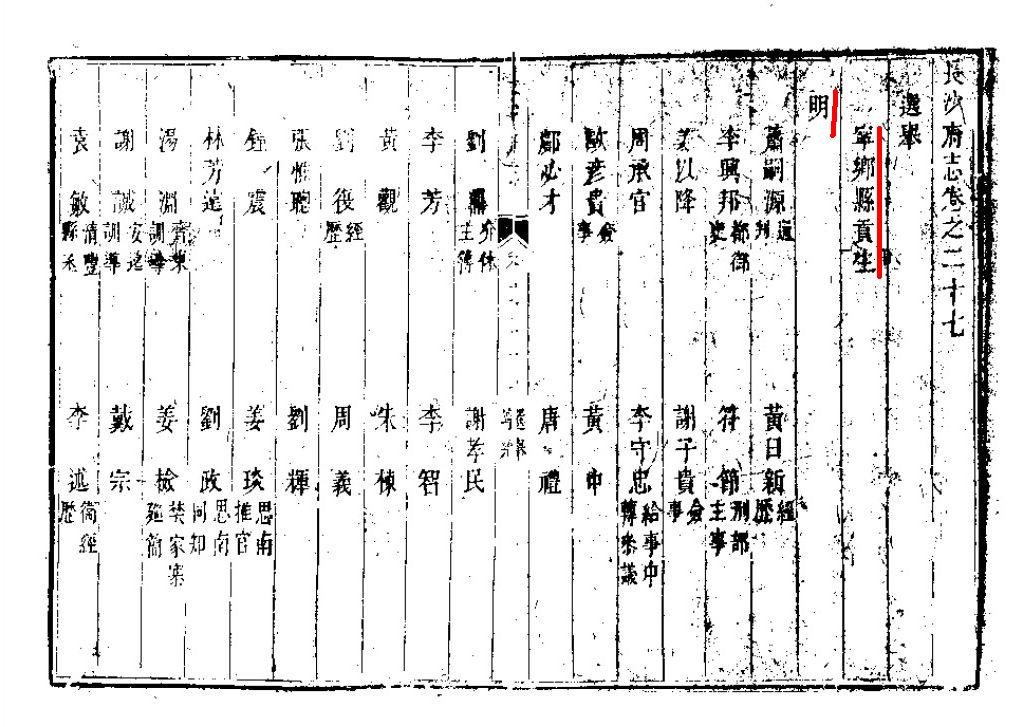 長沙府志卷之二十七
選舉
寧鄉縣貢生
明
蕭嗣源 通判 黃日新 經歷
李興邦 都御史 符節 刑部主事
姜以降 謝子貴 僉事
周承官 李守忠 給事中轉參議
歐彥貴 僉事 黃中
必才 唐禮
選舉
劉 介休主簿 謝孝民
李芳 李智
黃觀 朱棟
劉復 經歷 周義
張惟聰 劉輝
鍾震 姜琰 思南推官
林芳遠 劉政 思南同知
湯淵 齊東訓導 姜檢 家寨巡簡
謝誠 安遠訓導 戴宗
袁敏 清豐縣丞 李述 衛經歷